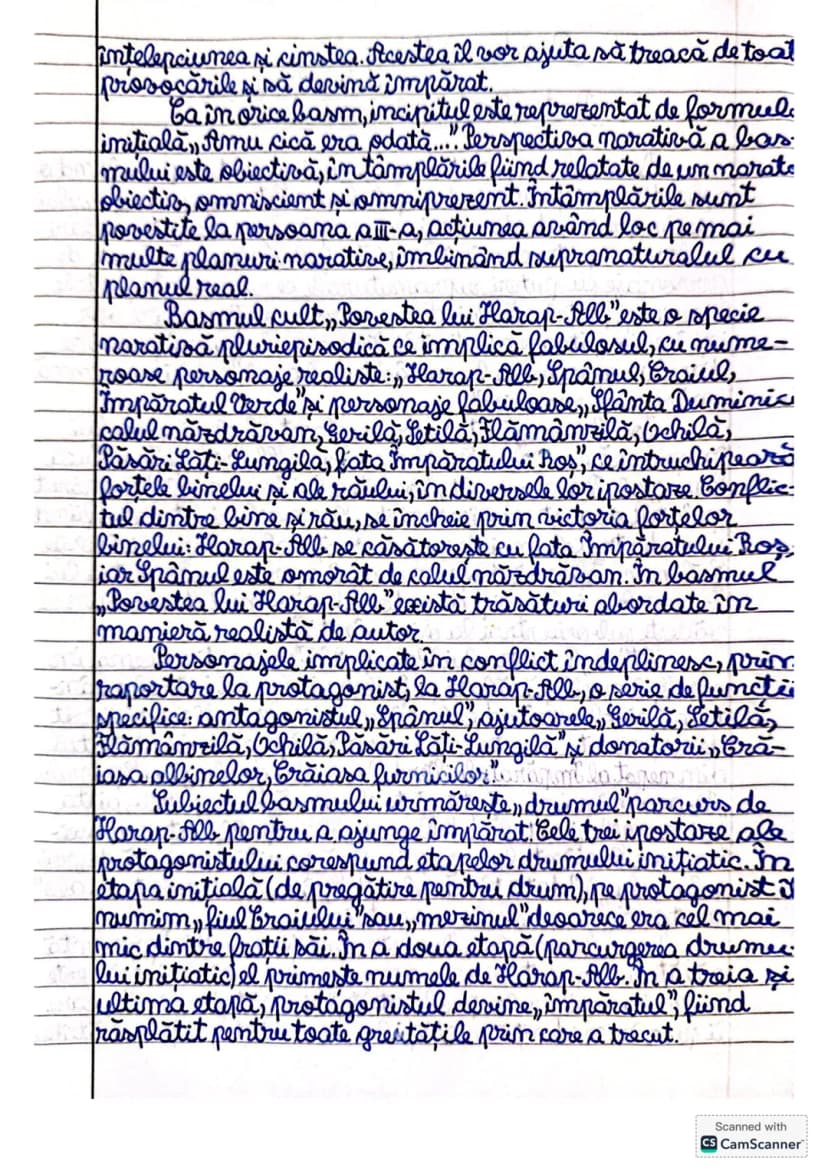 înțelepciunea și cinstea. Acestea îl vor ajuta să treacă de toat
provocările și să devină împărat.
Ca în orice basm, incipitul este reprezentat de formul
inițială „Amu cică era odată...". Perspectiva narativă a bas-
mului este obiectivă, întâmplările fiind relatate de un narato
obiectiv, omniscient și omniprezent. Întâmplările sunt
povestite la persoana a III-a, acțiunea având loc pe mai
multe planuri narative, îmbinând supranaturalul cu
planul real.
Basmul cult „Povestea lui Harap-Alb" este o specie
narativă pluriepisodică ce implică fabulosul, cu nume-
roase personaje realiste: „Harap-Alb, Spânul, Craiul,
Împăratul Verde" și personaje fabuloase „Sfânta Duminic
calul năzdrăvan, Gerilă, Setilă, Flămânzilă, Ochilă,
Păsări Lăți-Lungilă, fata Împăratului Roș", ce întruchipează
forțele binelui și ale răului, în diversele lor ipostaze. Conflic-
tul dintre bine și rău, se încheie prin victoria forțelor
binelui: Harap-Alb se căsătorește cu fata Împăratului Roș,
iar Spânul este omorât de calul năzdrăvan. În basmul
„Povestea lui Harap-Alb" există trăsături abordate în
manieră realistă de autor.
Personajele implicate în conflict îndeplinesc, prin
raportare la protagonist, la Harap-Alb, o serie de funcții
specifice: antagonistul „Spânul", ajutoarele „Gerilă, Setilă,
Flămânzilă, Ochilă, Păsări Lăți-Lungilă" și donatorii „Cră-
iasa albinelor, Crăiasa furnicilor".
Subiectul basmului urmărește „drumul" parcurs de
Harap-Alb pentru a ajunge împărat. Cele trei ipostaze ale
protagonistului corespund etapelor drumului inițiatic. În
etapa inițială (de pregătire pentru drum), pe protagonist îl
numim „fiul Craiului" sau „mezinul" deoarece era cel mai
mic dintre frații săi. În a doua etapă (parcurgerea drumu-
lui inițiatic) el primește numele de Harap-Alb. În a treia și
ultima etapă, protagonistul devine „împăratul", fiind
răsplătit pentru toate greutățile prin care a trecut.
Scanned with
CS CamScanner